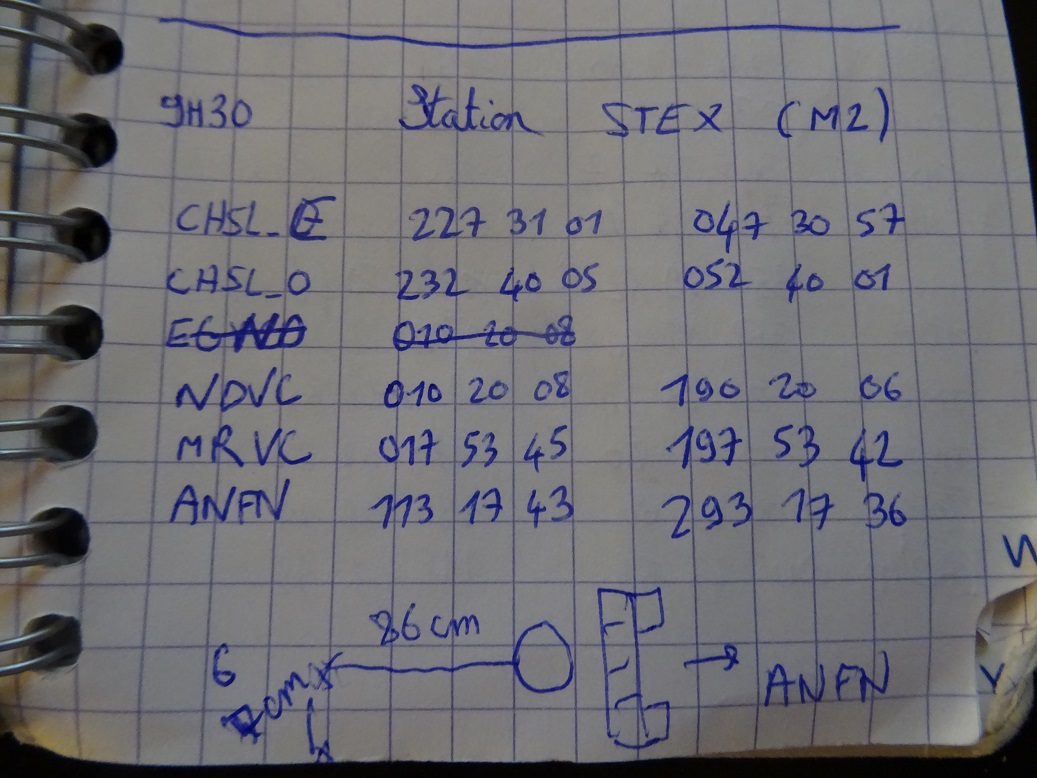 9H30 Station STEX (M2)
CHSL_E 227 31 01 047 30 57
CHSL_O 232 40 05 052 40 01
010 20 08
NDVC 010 20 08 190 20 06
MRVC 017 53 45 197 53 42
ANFN 113 17 43 293 17 36
86 cm
6
cm
ANFN